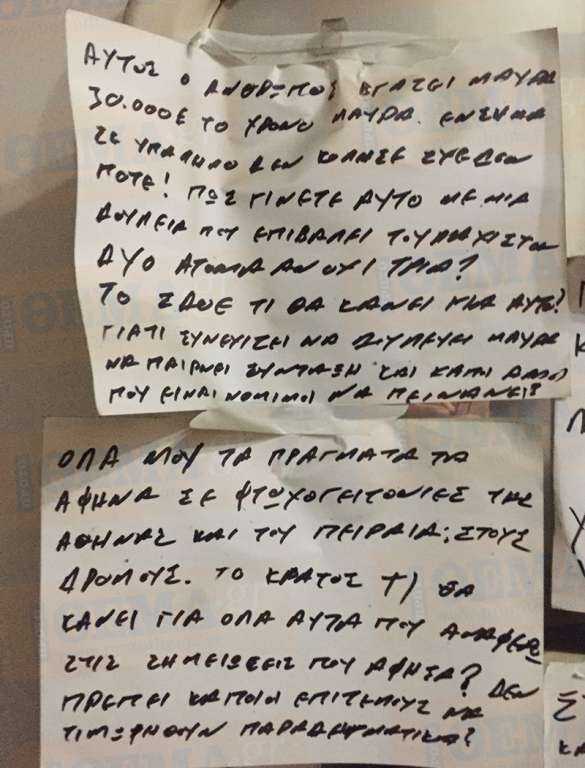 ΑΥΤΟΣ Ο ΑΝΘΡΩΠΟΣ ΒΓΑΖΕΙ ΜΑΥΡΑ
30.000€ ΤΟ ΧΡΟΝΟ ΜΑΥΡΑ. ΕΝΣΗΜΑ
ΣΕ ΥΠΑΛΗΛΟ ΔΕΝ ΚΟΛΗΣΕ ΣΧΕΔΟΝ
ΠΟΤΕ! ΠΩΣ ΓΙΝΕΤΕ ΑΥΤΟ ΜΕ ΜΙΑ
ΔΟΥΛΕΙΑ ΠΟΥ ΕΠΙΒΑΛΕΙ ΤΟΥΛΑΧΙΣΤΟΝ
ΔΥΟ ΑΤΟΜΑ ΑΝ ΟΧΙ ΤΡΙΑ?
ΤΟ ΣΔΟΕ ΤΙ ΘΑ ΚΑΝΕΙ ΓΙΑ ΑΥΤΟ?
ΓΙΑΤΙ ΣΥΝΕΧΙΖΕΙ ΝΑ ΔΟΥΛΕΥΕΙ ΜΑΥΡΑ
ΝΑ ΠΑΙΡΝΕΙ ΣΥΝΤΑΞΗ ΚΑΙ ΚΑΠΙ ΑΛΛΟΙ
ΠΟΥ ΕΙΝΑΙ ΝΟΜΙΜΟΙ ΝΑ ΠΕΙΝΑΝΕ?
ΟΛΑ ΜΟΥ ΤΑ ΠΡΑΓΜΑΤΑ ΤΑ
ΑΦΗΝΑ ΣΕ ΦΤΩΧΟΓΕΙΤΟΝΙΕΣ ΤΗΣ
ΑΘΗΝΑΣ ΚΑΙ ΤΟΥ ΠΕΙΡΑΙΑ, ΣΤΟΥΣ
ΔΡΟΜΟΥΣ. ΤΟ ΚΡΑΤΟΣ ΤΙ ΘΑ
ΚΑΝΕΙ ΓΙΑ ΟΛΑ ΑΥΤΑ ΠΟΥ ΑΝΑΦΕΡΩ
ΣΤΙΣ ΣΗΜΕΙΩΣΕΙΣ ΠΟΥ ΑΦΗΣΑ? ΔΕΝ
ΠΡΕΠΕΙ ΚΑΠΟΙΟΙ ΕΠΙΤΕΛΟΥΣ ΝΑ
ΤΙΜΩΡΗΘΟΥΝ ΠΑΡΑΔΕΙΓΜΑΤΙΚΑ?